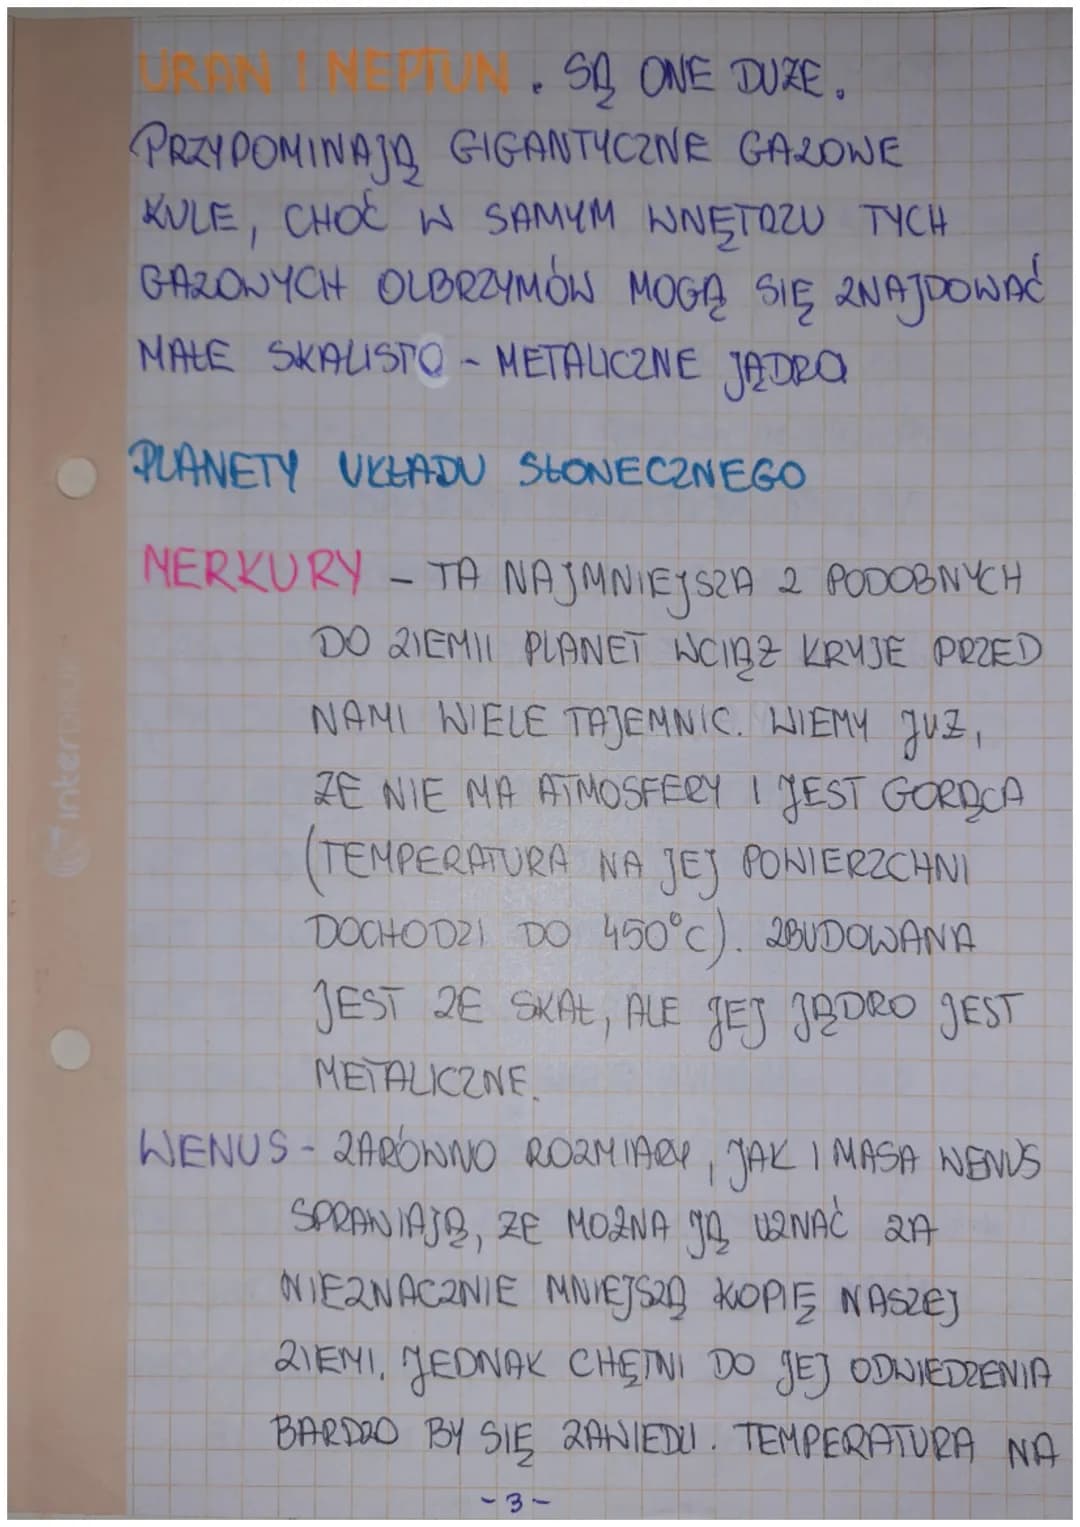 URAN I NEPTUN. SĄ ONE DUŻE.
PRZYPOMINAJĄ GIGANTYCZNE GAZOWE
KULE, CHOĆ W SAMYM WNĘTRZU TYCH
GAZOWYCH OLBRZYMÓW MOGĄ SIĘ ZNAJDOWAĆ
MAŁE SKALISTO - METALICZNE JĄDRA
PLANETY UKŁADU SŁONECZNEGO
MERKURY - TA NAJMNIEJSZA Z PODOBNYCH
DO ZIEMII PLANET WCIĄŻ KRYJE PRZED
NAMI WIELE TAJEMNIC. WIEMY JUŻ,
ŻE NIE MA ATMOSFERY I JEST GORĄCA
(TEMPERATURA NA JEJ POWIERZCHNI
DOCHODZI DO 450°C). ZBUDOWANA
JEST ZE SKAŁ, ALE JEJ JĄDRO JEST
METALICZNE.
WENUS - ZARÓWNO ROZMIARY, JAK I MASA WENUS
SPRAWIAJĄ, ŻE MOŻNA JĄ UZNAĆ ZA
NIEZNACZNIE MNIEJSZĄ KOPIĘ NASZEJ
ZIEMI. JEDNAK CHĘTNI DO JEJ ODWIEDZENIA
BARDZO BY SIĘ ZAWIEDLI. TEMPERATURA NA
-3-